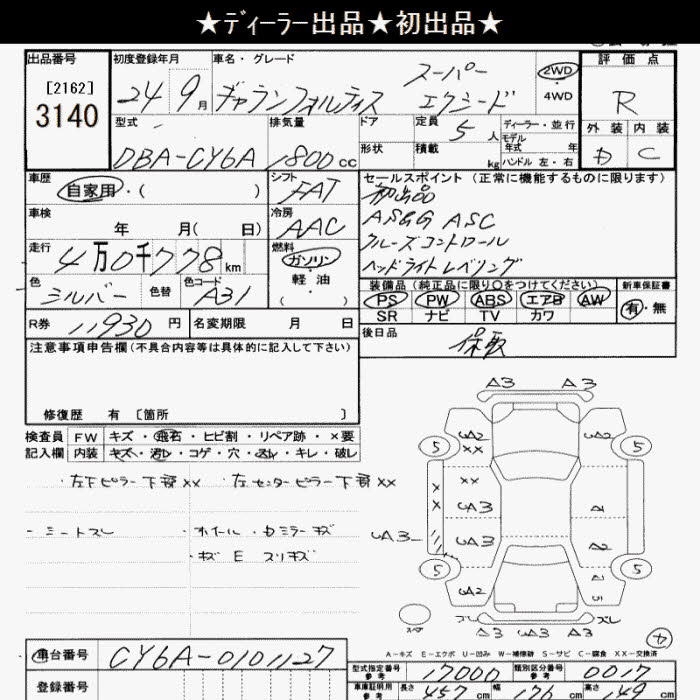 ★ディーラー出品★初出品★
出品番号 初度登録年月 車名・グレード 評価点
[2162]
3140
24 9月 ギャランフォルティス スーパーエクシード 2WD 4WD R
型式 排気量 ドア 定員 5人 ディーラー・並行 外装 内装
DBA-CY6A 1800cc 形状 積載 kg モデル年式 年 C
ハンドル 左・右
車歴 自家用・( ) シフト FAT セールスポイント (正常に機能するものに限ります)
初出品
車検 年 月( 日) 冷房 AAC ASGG ASC
クルーズコントロール
走行 4万0千778km 燃料 ガソリン ヘッドライトレベリング
軽油
( )
色 シルバー 色替 色コード A31 装備品(純正品に限り○をつけてください) 新車保証書
PS PW ABS エアB AW 有・無
SR ナビ TV カワ
R券 11930円 名変期限 月 日 後日品 保取
注意事項申告欄(不具合内容等は具体的に記入して下さい)
修復歴 有 〔箇所 〕
検査員 FW キズ・飛石・ヒビ割・リペア跡・×要
記入欄 内装 キズ・汚レ・コゲ・穴・スレ・キレ・破レ
・左下ピラー下部XX ・左センターピラー下部XX
・シートスレ ・ホイール・
・キズ E スリキズ
A3 A3
5 A2 XX A2 5
XX XX
A3 A3 A1
A2
5 A2 5
スレ スレ
A3 A3 A3
A-キズ E-エクボ U-凹み W-補修跡 S-サビ C-腐食 XX-交換済
車台番号 CY6A-0101127
登録番号
型式指定番号 参考 17000 類別区分番号 参考 0017
車庫証明用 参考 長さ 457cm 幅 176cm 高さ 149cm